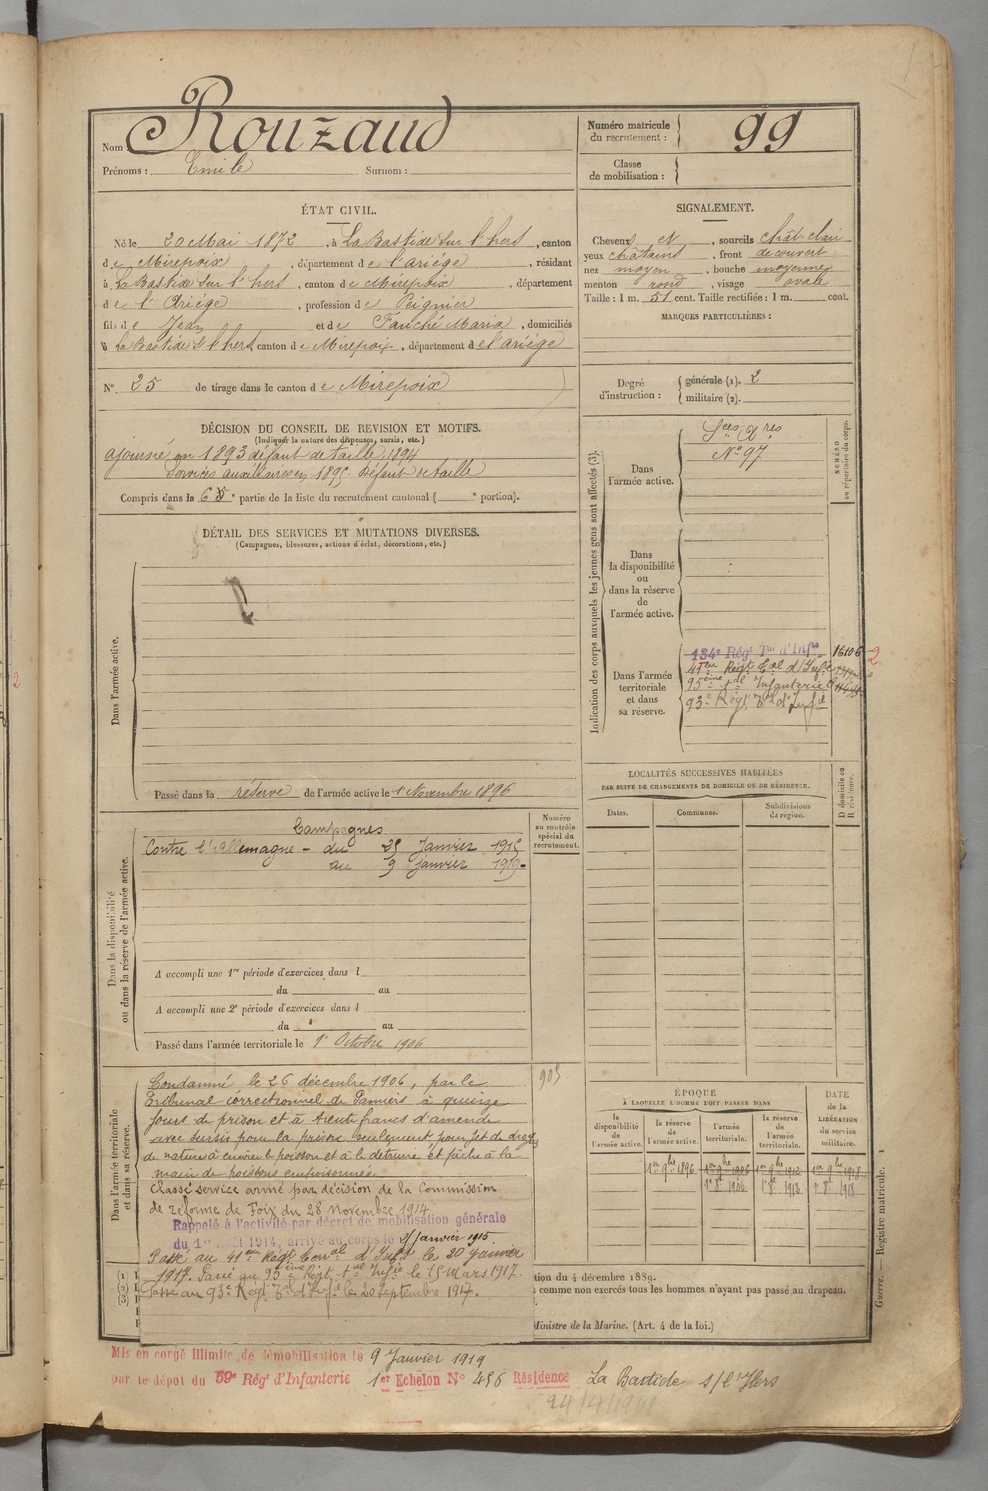 Nom Rouzaud
Prénoms : Emile Surnom :
Numéro matricule du recrutement : 99
Classe de mobilisation :
ÉTAT CIVIL.
Né le 20 Mai 1872, à La Bastide sur l'hers, canton
de Mirepoix, département de l'Ariége, résidant
à La Bastide sur l'hers, canton de Mirepoix, département
de l'Ariége, profession de Peignier
fils de Jean et de Fauché Maria, domiciliés
à La Bastide S l'hers, canton de Mirepoix, département de l'ariége
N° 25 de tirage dans le canton de Mirepoix
SIGNALEMENT.
Cheveux et, sourcils chât. clair
yeux châtains, front découvert
nez moyen, bouche moyenne
menton rond, visage ovale
Taille : 1 m. 51 cent. Taille rectifiée : 1 m. cent.
MARQUES PARTICULIÈRES :
Degré d'instruction : générale (1). 2
militaire (2).
DÉCISION DU CONSEIL DE REVISION ET MOTIFS.
(Indiquer la nature des dispenses, sursis, etc.)
ajourné en 1893 défaut de taille 1894
Services auxiliaires en 1895 Défaut de taille
Compris dans la 6 e partie de la liste du recrutement cantonal ( e portion).
DÉTAIL DES SERVICES ET MUTATIONS DIVERSES.
(Campagnes, blessures, actions d'éclat, décorations, etc.)
Dans l'armée active.
Passé dans la réserve de l'armée active le 1 Novembre 1896
Indication des corps auxquels les jeunes gens sont affectés (3).
NUMÉRO au répertoire du corps.
Dans l'armée active.
Sces Xres
N° 97
Dans la disponibilité ou dans la réserve de l'armée active.
Dans l'armée territoriale et dans sa réserve.
134e Régt Tal d'Infie 16106
41eme Régt Tal d'Infie
95eme tal Infanterie
93e Régt Tal d'Infie
2
LOCALITÉS SUCCESSIVES HABITÉES
PAR SUITE DE CHANGEMENTS DE DOMICILE OU DE RÉSIDENCE.
Dates. Communes. Subdivisions de région. D domicile ou R résidence.
Dans la disponibilité ou dans la réserve de l'armée active.
Numéro au contrôle spécial du recrutement.
Campagnes
Contre l'Allemagne - du 25 Janvier 1915
au 9 Janvier 1919-
A accompli une 1re période d'exercices dans l
du au
A accompli une 2e période d'exercices dans l
du au
Passé dans l'armée territoriale le 1er Octobre 1906
Dans l'armée territoriale et dans sa réserve.
905
Condamné le 26 décembre 1906, par le
Tribunal correctionnel de Pamiers à quinze
jours de prison et à trente francs d'amende
avec sursis pour la prison seulement pour jet de drogues
de nature à enivrer le poisson et à le détruire et pêche à la
main de poissons empoisonnés
Classé service armé par décision de la Commission
de réforme de Foix du 28 novembre 1914
Rappelé à l'activité par décret de mobilisation générale
du 1er août 1914, arrivé au corps le 25 Janvier 1915.
Passé au 41eme Régt Terral d'Infie le 20 Janvier
1917. Passé au 95eme Régt tal Infie le 15 Mars 1917.
Passé au 93e Régt Tal d'Infie le 20 septembre 1917.
ÉPOQUE
À LAQUELLE L'HOMME DOIT PASSER DANS
la disponibilité de l'armée active. la réserve de l'armée active. l'armée territoriale. la réserve de l'armée territoriale.
DATE de la LIBÉRATION du service militaire.
1er 9bre 1896 1er 9bre 1906 1er 9bre 1912 1er 9bre 1918
1er 8e 1906 1er 8e 1912 1er 8e 1918
tion du 4 décembre 1889.
comme non exercés tous les hommes n'ayant pas passé au drapeau.
Ministre de la Marine. (Art. 4 de la loi.)
Guerre. — Registre matricule. 1
Mis en congé illimité de démobilisation le 9 Janvier 1919
par le dépot du 59e Régt d'Infanterie 1er Echelon N° 456 Résidence La Bastide s/l'Hers